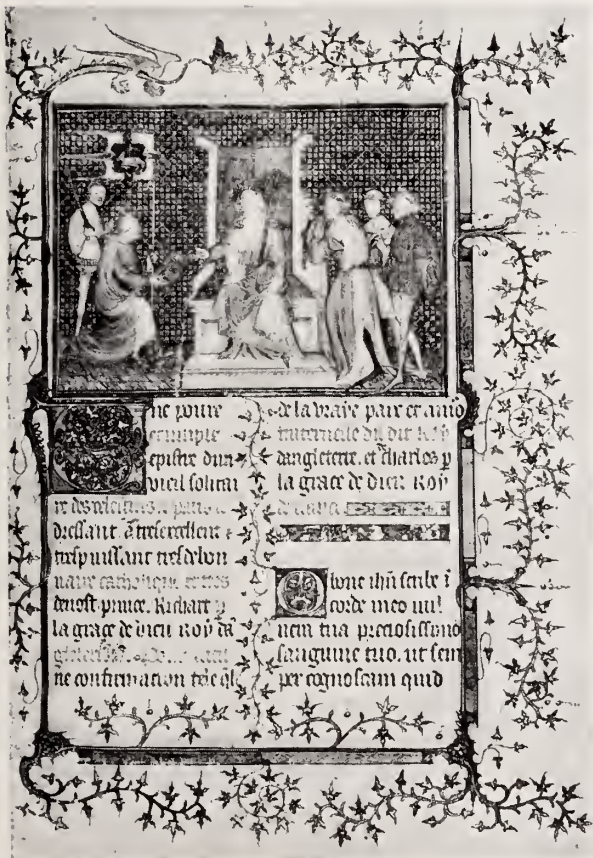 ne poure
et simple
epistre dun
vieil solitai
re des celestins de paris
dressant a tresexcellent et
trespuissant tresdebon
naire catholique et tres
devost prince. Richart p
la grace de dieu Roy d'
ne confirmacion toute q̃l
de la vraye paix et amo
fraternelle du dit Roy
dangleterre. et charles p
la grace de dieu Roy
de france
O bone ihũ scribe ĩ
corde meo vul
nera tua preciosissimo
sanguine tuo. ut sem
per cognoscam quid